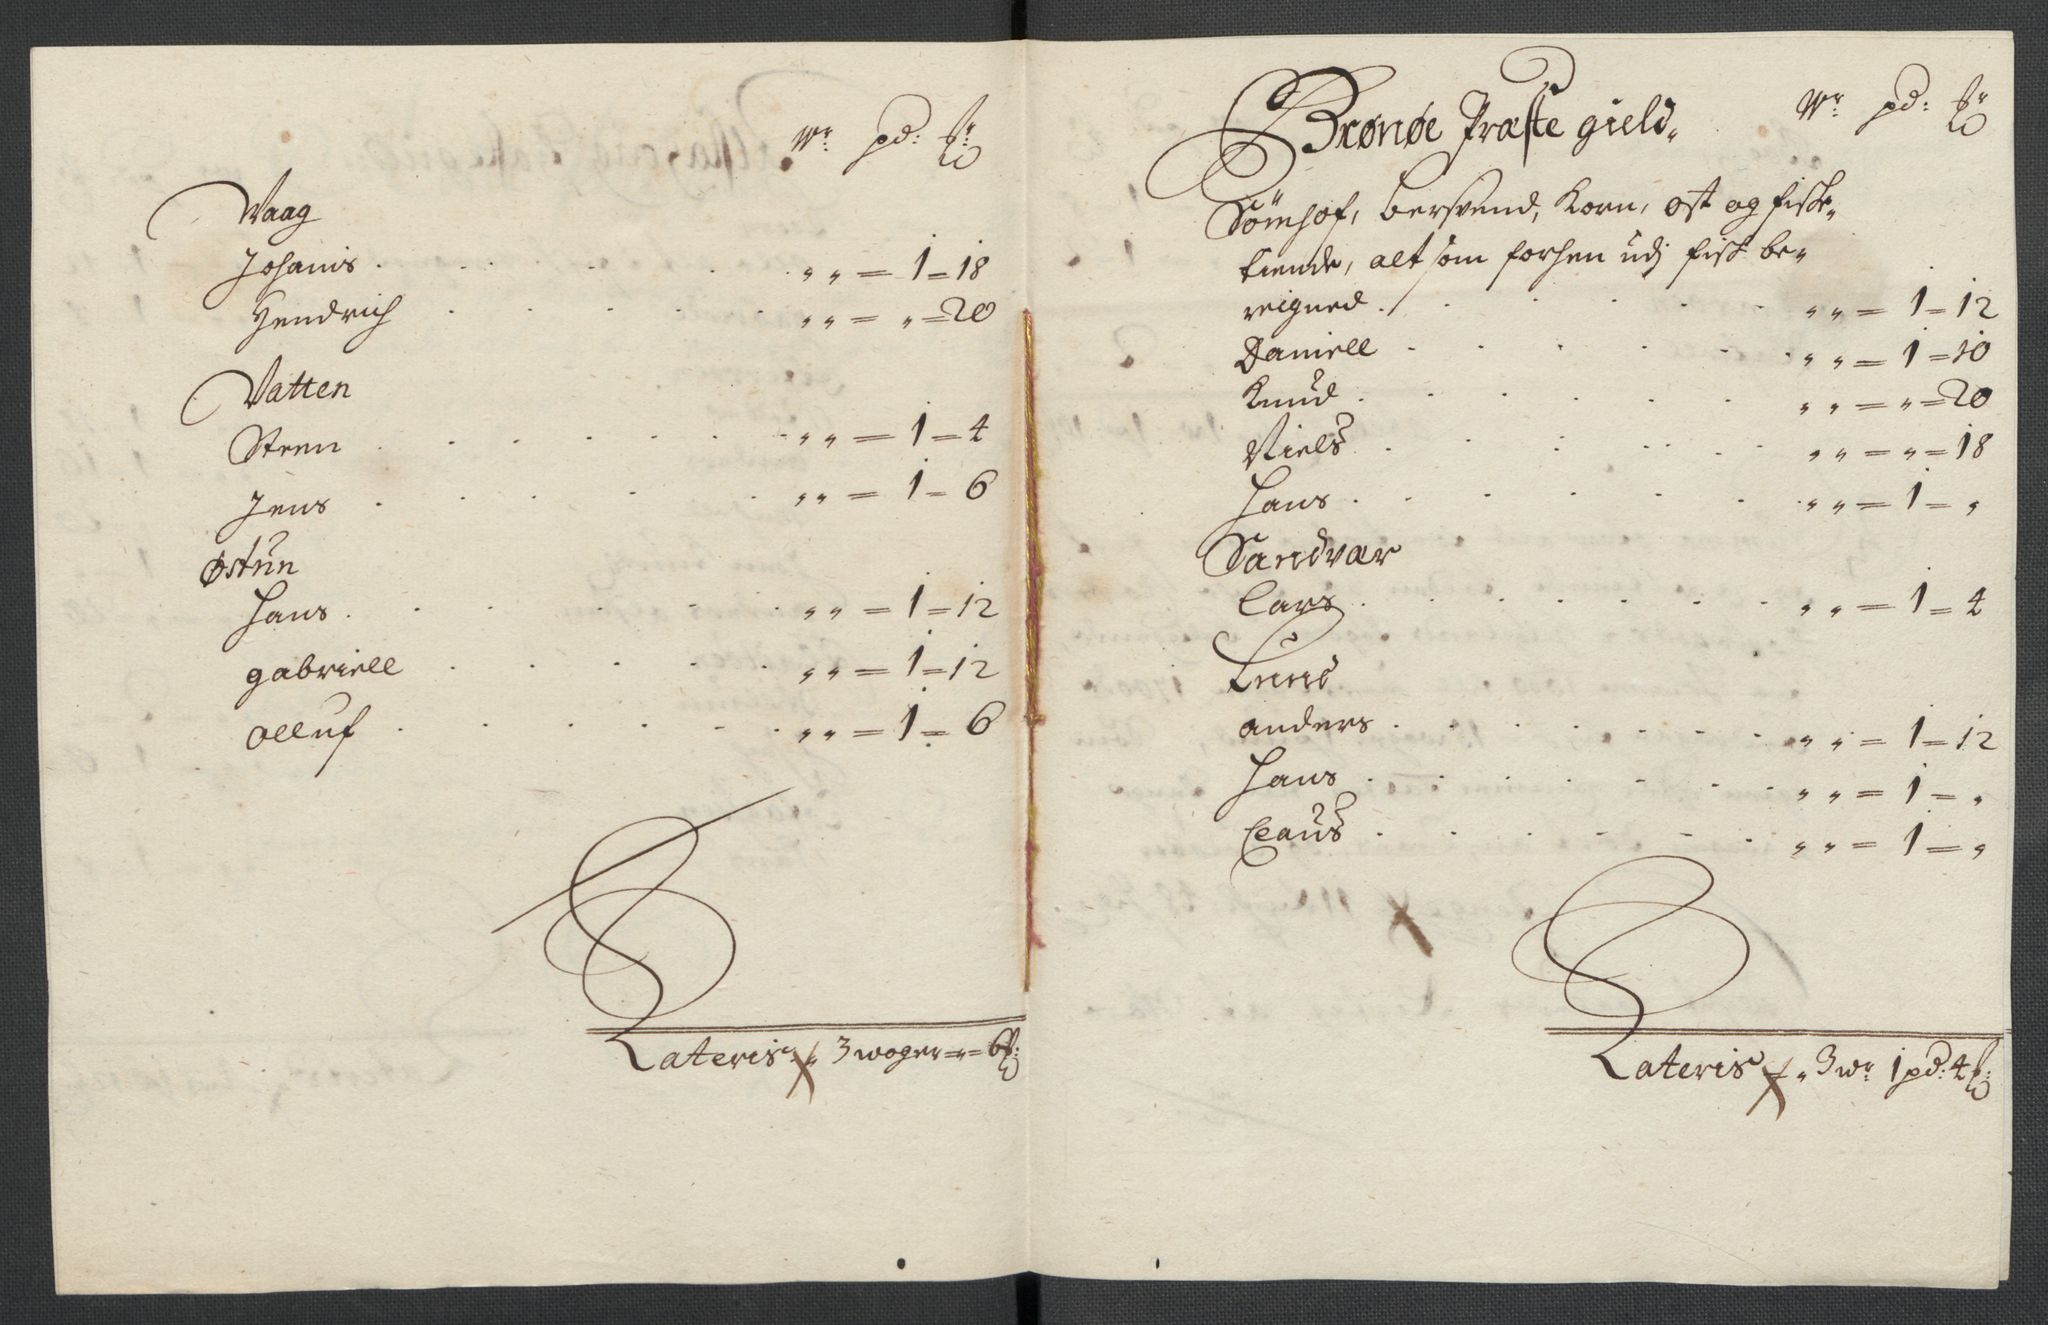 Wr: pd: ℔r:
Waag
Johanis . . . . . „ „ = 1 = 18
Hendrich . . . . . „ „ = „ = 20
Vatten
Steen . . . . . „ „ = 1 = 4
Jens . . . . . „ „ = 1 = 6
Østun
Hans . . . . . „ „ = 1 = 12
gabriell . . . . . „ „ = 1 = 12
Olluf . . . . . „ „ = 1 = 6
Lateris „ 3 woger = „ = 6 ℔:
Brønøe Præste gield. Wr: pd: ℔r:
Sömhof, Berswend, Korn, ost og fiske-
tiende, alt som forhen udj fisk be-
reigned . . . . . „ „ = 1 = 12
Daniell . . . . . „ „ = 1 = 10
Knud . . . . . „ „ = „ = 20
Niels . . . . . „ „ = „ = 18
Hans . . . . . „ „ = 1 = „
Sandvær
Lars . . . . . „ „ = 1 = 4
Lund
anders . . . . . „ „ = 1 = 12
Hans . . . . . „ „ = 1 = „
Claus . . . . . „ „ = 1 = „
Lateris „ 3 wr 1 pd: 4 ℔: